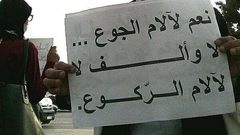 نعم لآلام الجوع ...
لا وألــف لا
لآلام الرّكــوع.